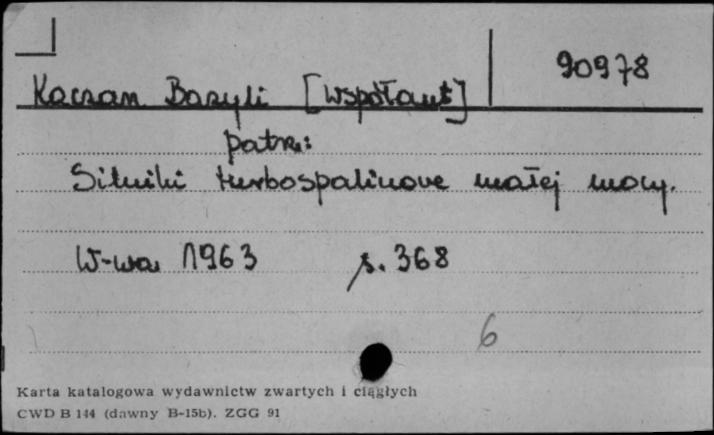 90978
Kaczan Bazyli [współaut]
patrz:
Silniki turbospalinowe małej mocy.
W-wa 1963 s. 368
6
Karta katalogowa wydawnictw zwartych i ciągłych
CWD B 144 (dawny B-15b). ZGG 91